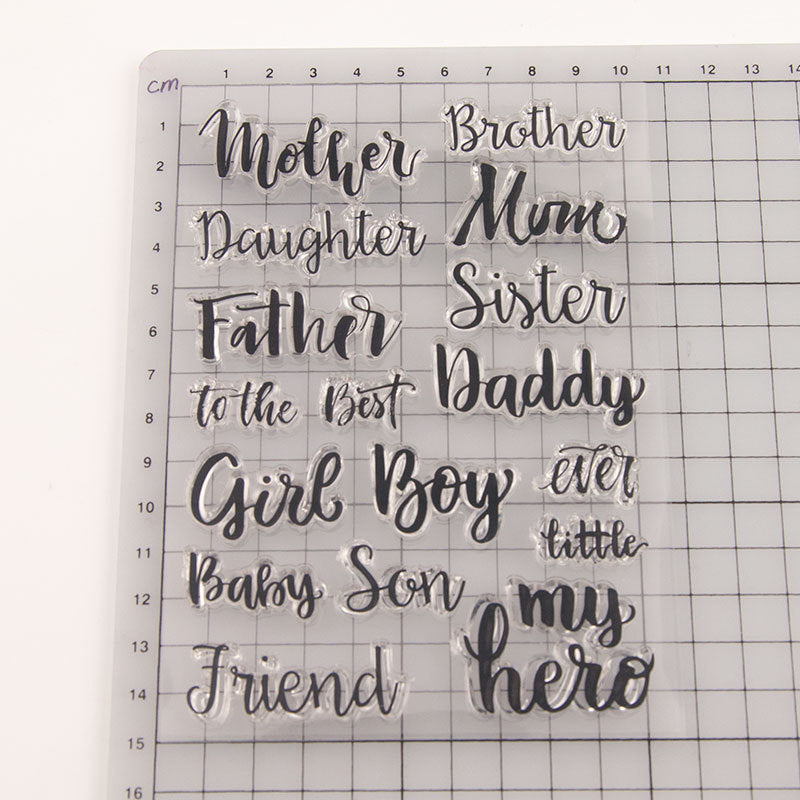 cm
1 2 3 4 5 6 7 8 9 10 11 12 13 14
1
2
3
4
5
6
7
8
9
10
11
12
13
14
15
16
Mother
Brother
Mum
Daughter
Sister
Father
Daddy
to the Best
Girl Boy
ever
little
Baby Son
my
hero
Friend